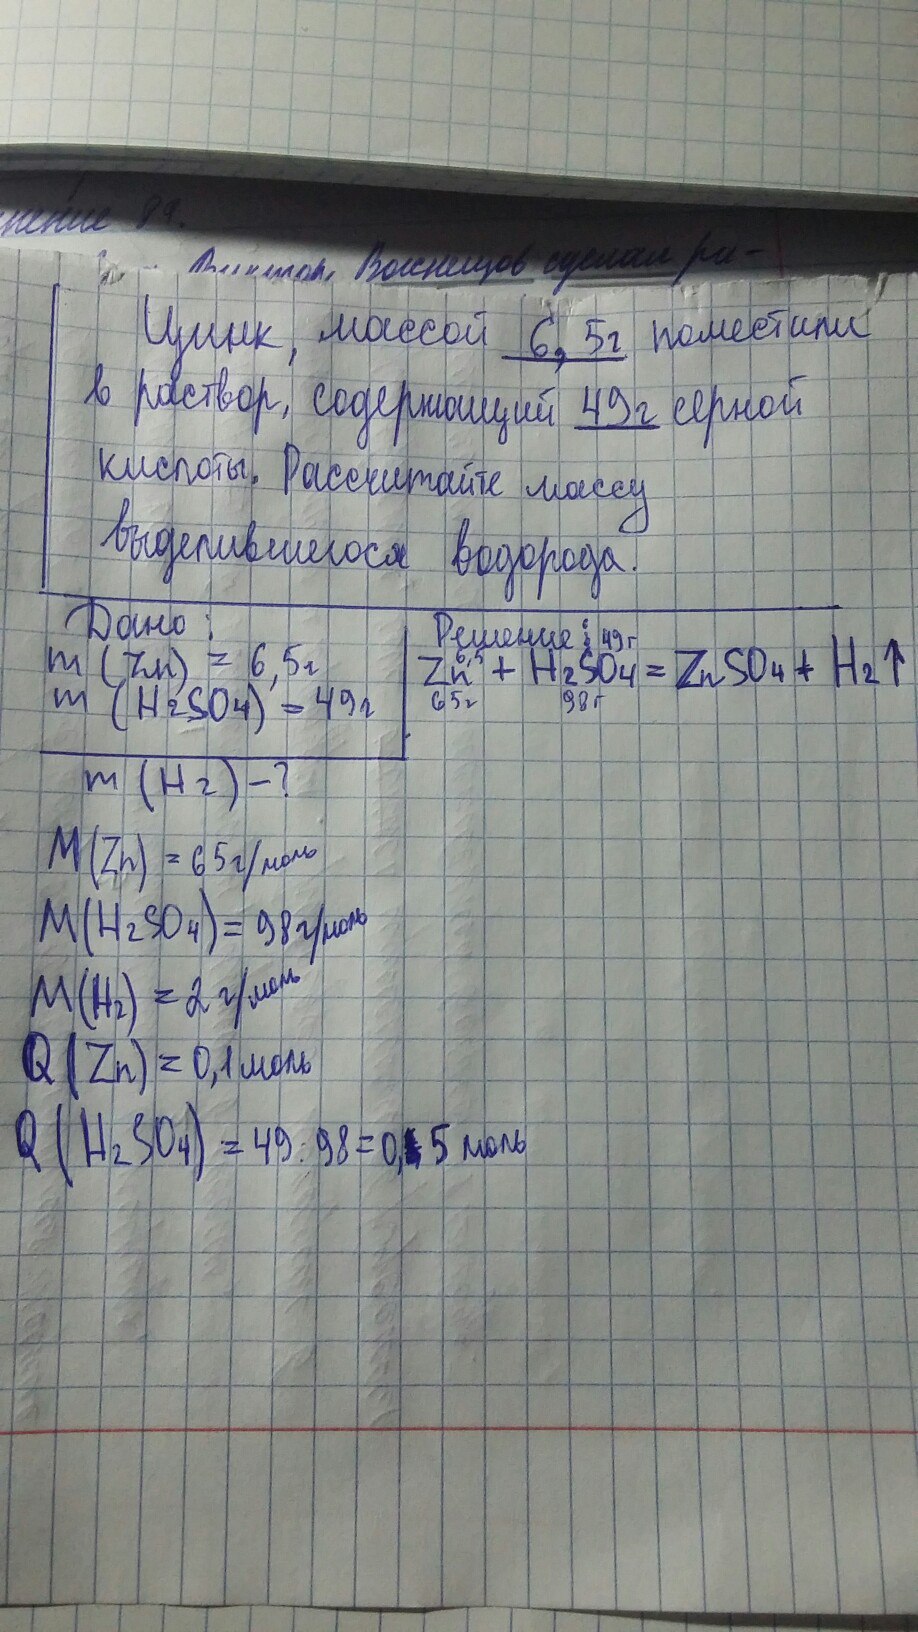 нение 89.
Васнецов сделал ри-
Цинк, массой 6,5г поместили
в раствор, содержащий 49г серной
кислоты. Рассчитайте массу
выделившегося водорода.
Дано:
m (Zn) = 6,5г
m (H2SO4) = 49г
m (H2) - ?
Решение:
6,5 49г
Zn + H2SO4 = ZnSO4 + H2↑
65г 98г
M(Zn) = 65г/моль
M(H2SO4) = 98г/моль
M(H2) = 2 г/моль
Q(Zn) = 0,1моль
Q(H2SO4) = 49:98=0,5 моль